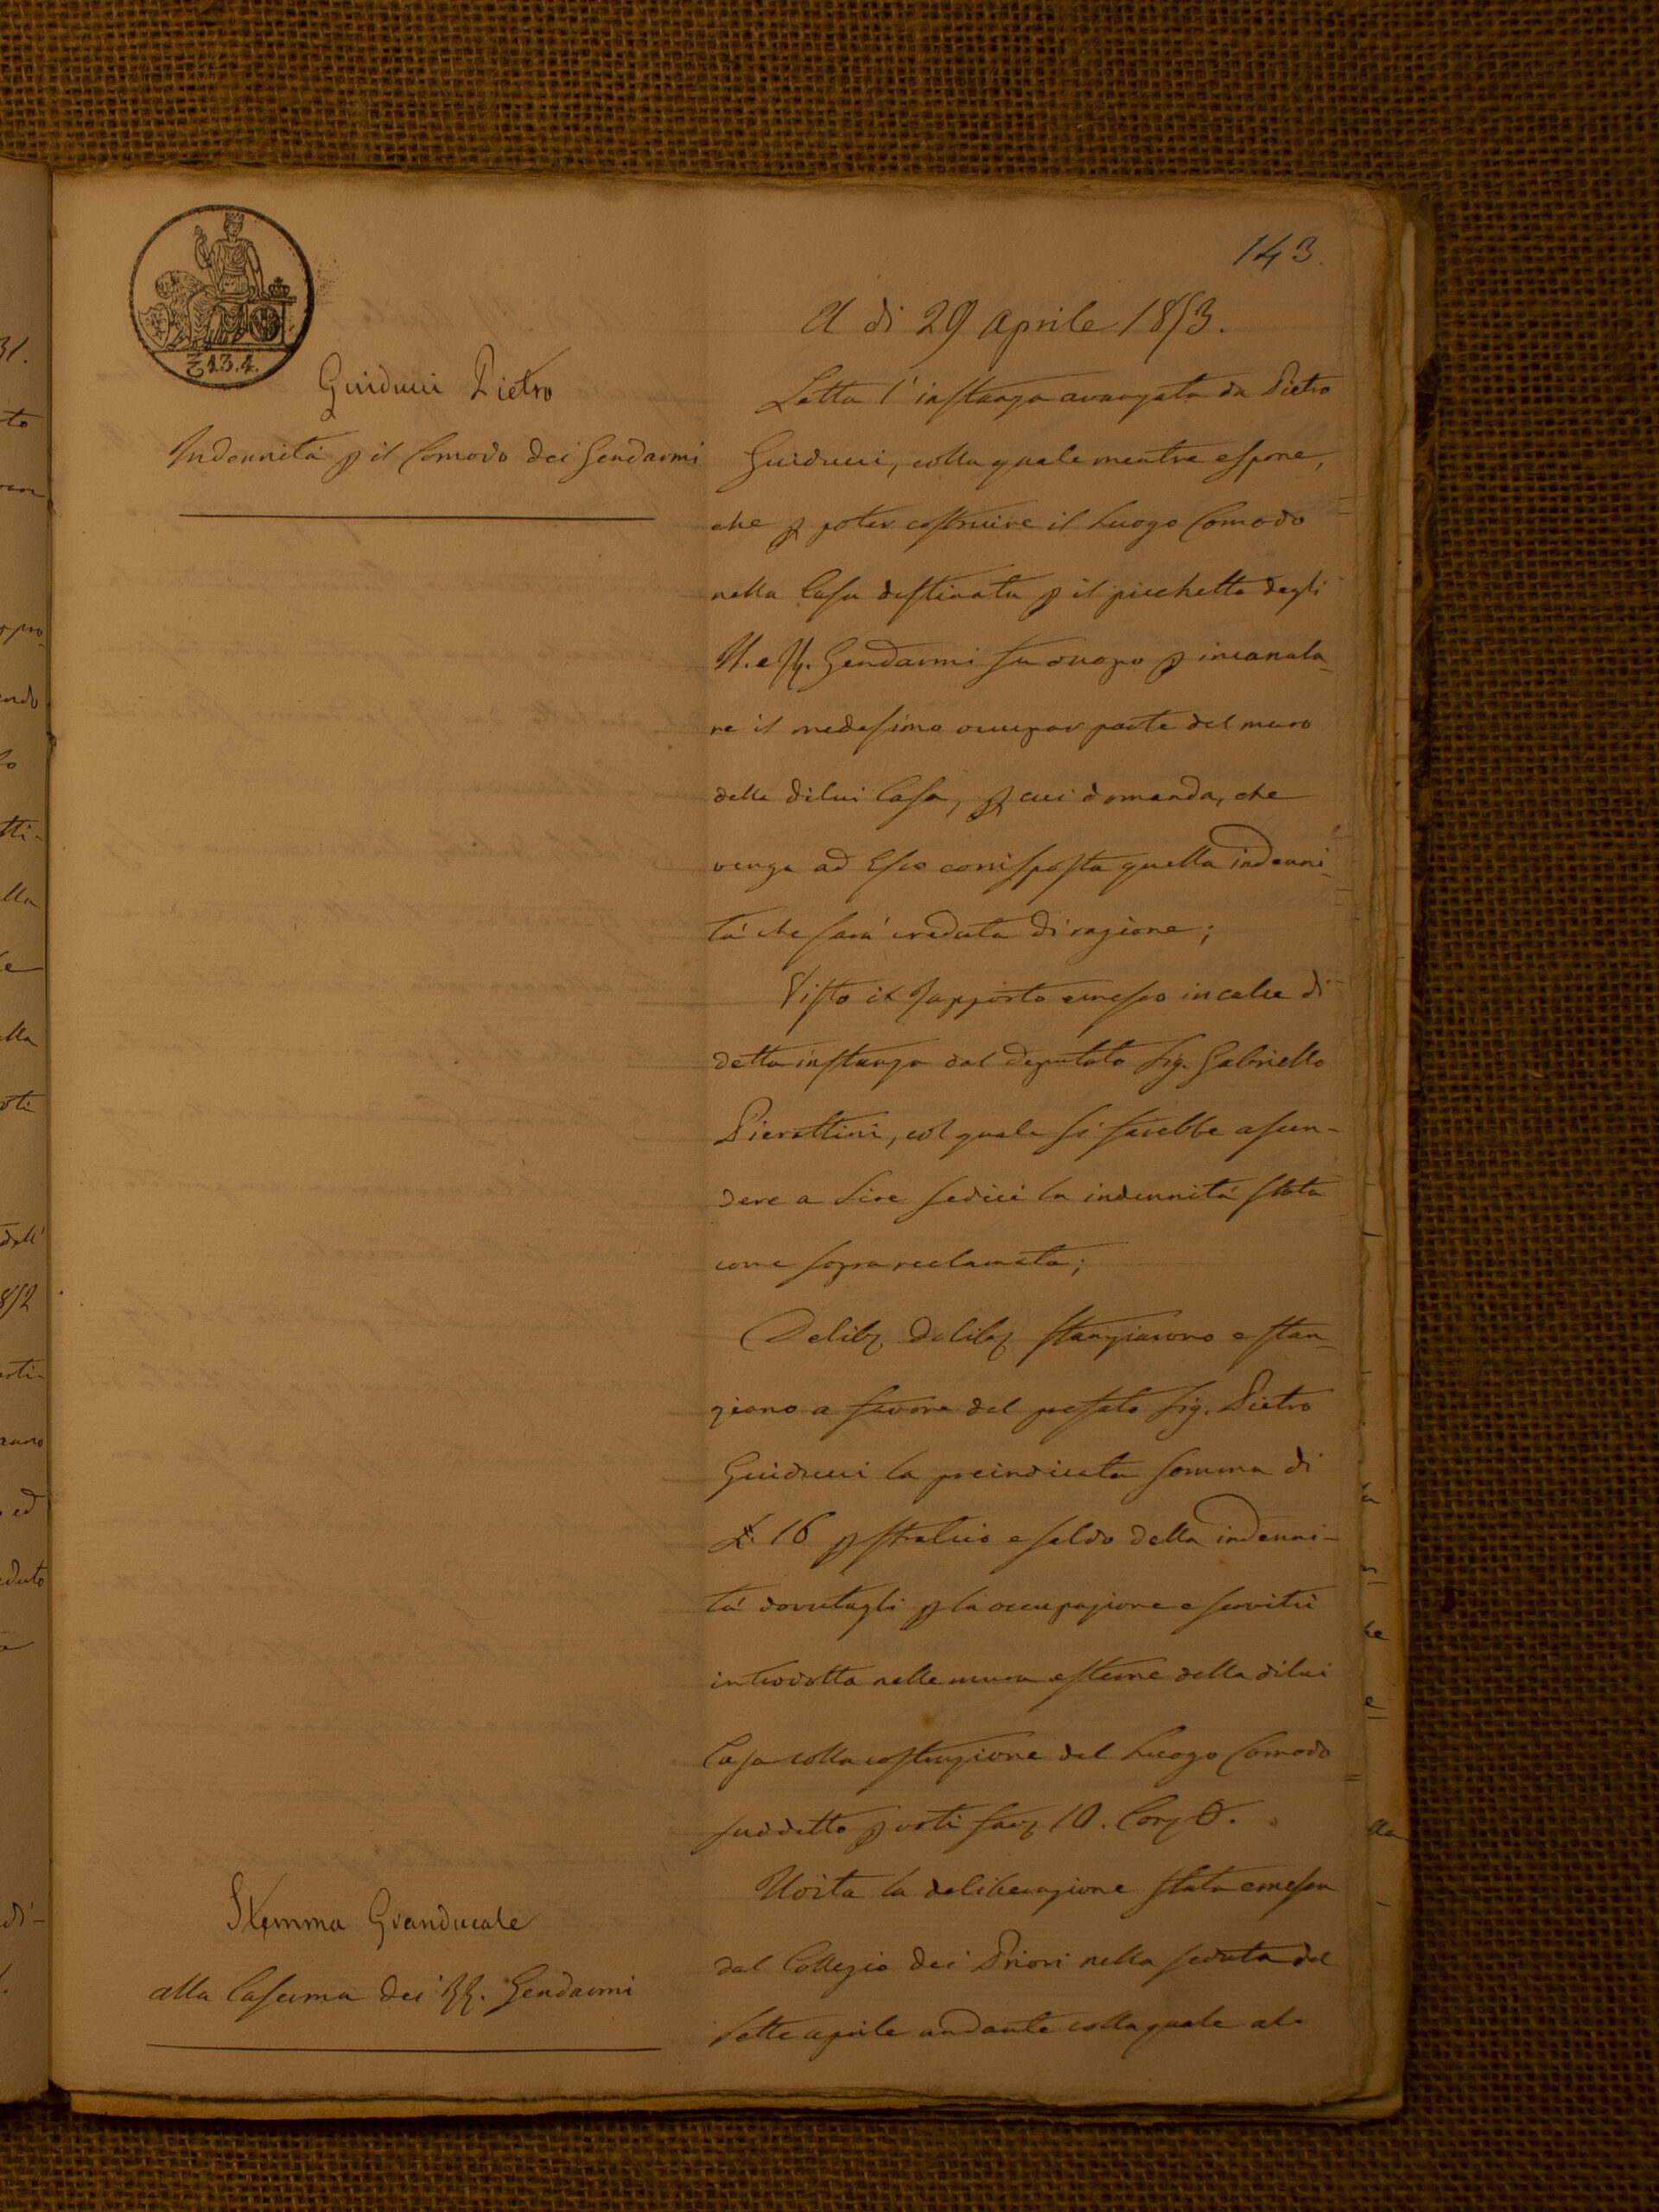 143.
A di 29 Aprile 1853.
13.4.
Guiducci Pietro
Indennità p il Comodo dei Gendarmi
Letta l'instanza avanzata da Pietro
Guiducci, colla quale mentre espone,
che p poter costruire il Luogo Comodo
nella Casa destinata p il picchetto degli
II. e RR. Gendarmi fu d'uopo p incanala_
re il medesimo occupar parte del muro
della di lui Casa, p cui domanda, che
venga ad Esso corrisposta quella indenni_
tà che sarà creduta di ragione;
Visto il Rapporto emesso in calce di
detta instanza dal Deputato Sig. Gabriello
Pierattini, col quale si farebbe ascen-
dere a Lire sedici la indennità stata
come sopra reclamata;
Delib. Delib. stanziarono e stan_
ziano a favore del prefato Sig. Pietro
Guiducci la preindicata somma di
£. 16 p stralcio e saldo della indenni-
tà dovutagli p la occupazione e servitù
introdotta nelle mura esterne della di lui
Casa colla costruzione del Luogo Comodo
suddetto p voti fav. 10. Con. 0.
Stemma Granducale
alla Caserma dei RR. Gendarmi
Udita la deliberazione stata emessa
dal Collegio dei Priori nella seduta del
sette aprile andante colla quale al-